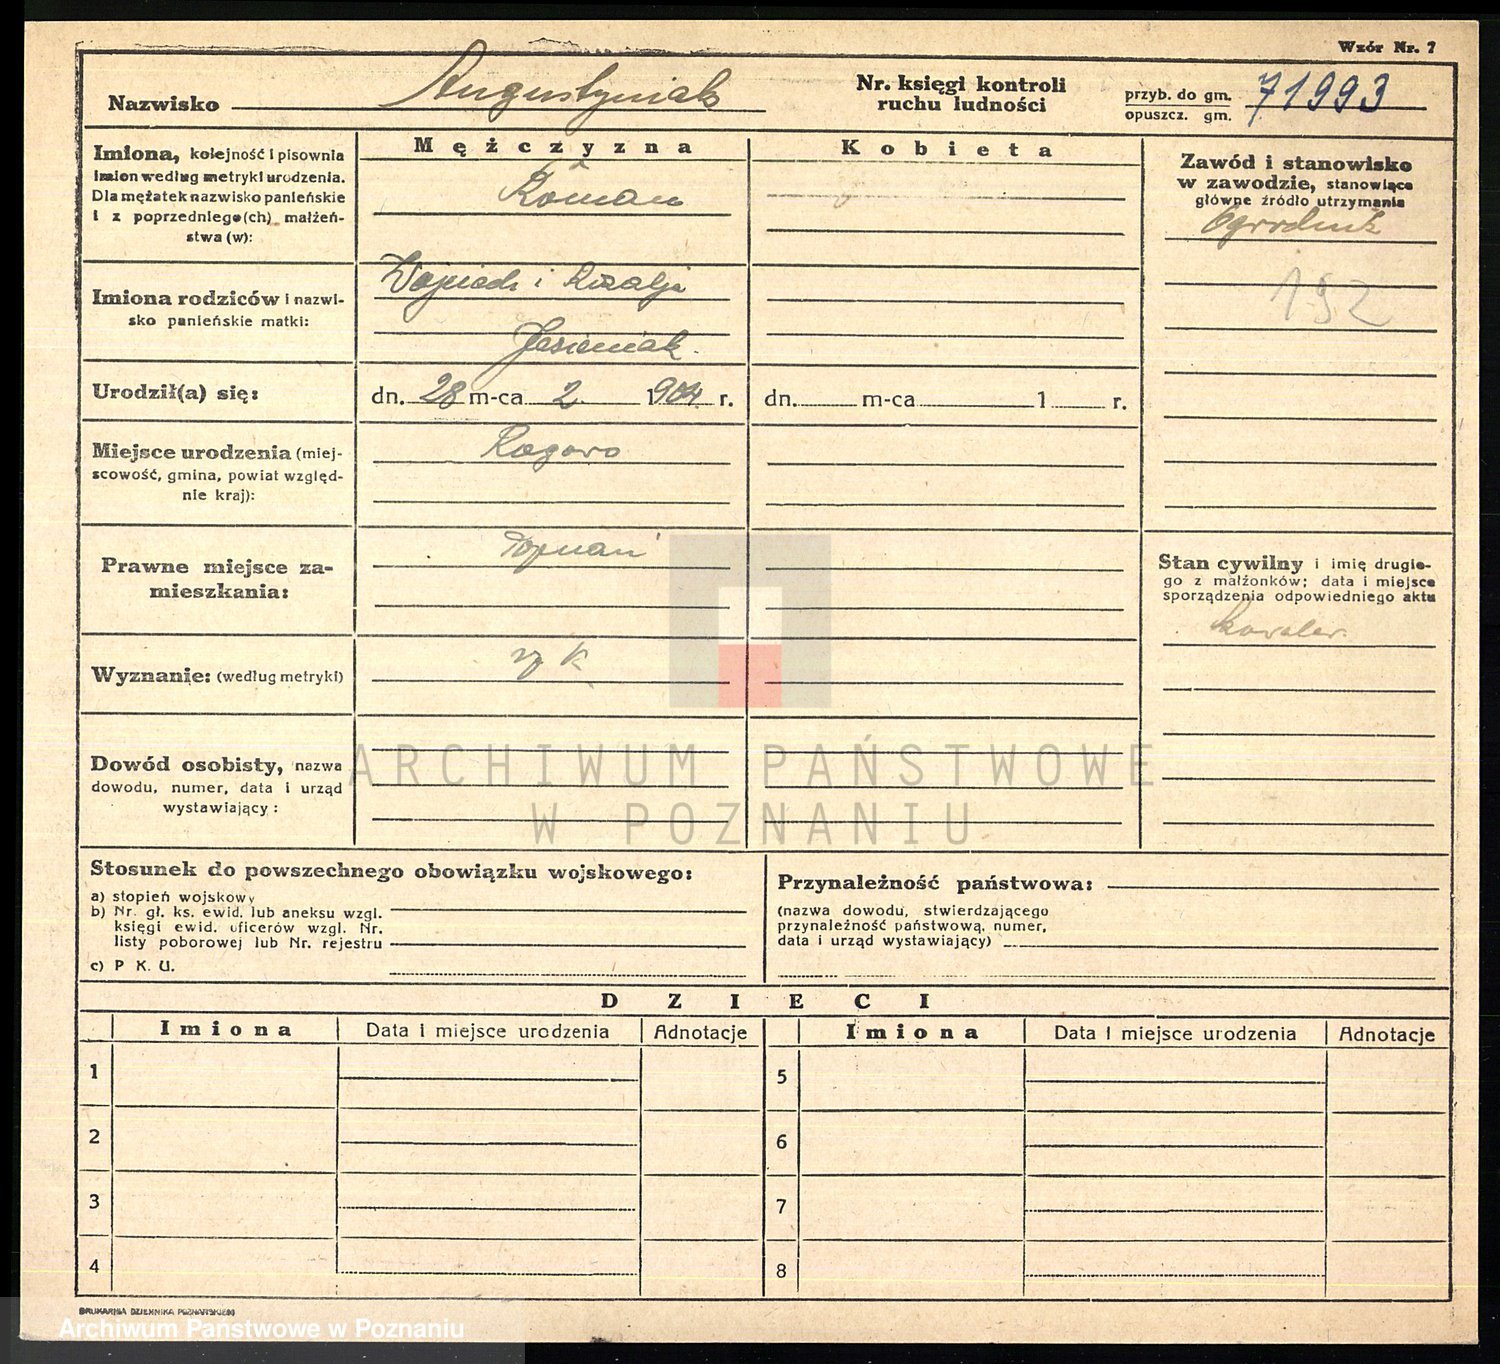 Wzór Nr. 7
Nazwisko Augustyniak
Nr. księgi kontroli
ruchu ludności
przyb. do gm.
opuszcz. gm.
71993
Mężczyzna
Kobieta
Imiona, kolejność i pisownia
imion według metryki urodzenia.
Dla mężatek nazwisko panieńskie
i z poprzedniego(ch) małżeń-
stwa (w):
Roman
Zawód i stanowisko
w zawodzie, stanowiące
główne źródło utrzymania
Ogrodnik
192
Imiona rodziców i nazwi-
sko panieńskie matki:
Wojciech i Rozalja
Jasieniak.
Urodził(a) się:
dn. 28 m-ca 2. 1904 r.
dn. m-ca 1 r.
Miejsce urodzenia (miej-
scowość, gmina, powiat względ-
nie kraj):
Rogowo
Prawne miejsce za-
mieszkania:
Poznań
Stan cywilny i imię drugie-
go z małżonków; data i miejsce
sporządzenia odpowiedniego aktu
kawaler.
Wyznanie: (według metryki)
rz k.
Dowód osobisty, nazwa
dowodu, numer, data i urząd
wystawiający:
ARCHIWUM PAŃSTWOWE
W POZNANIU
Stosunek do powszechnego obowiązku wojskowego:
a) stopień wojskowy
b) Nr. gł. ks. ewid. lub aneksu wzgl.
księgi ewid. oficerów wzgl. Nr.
listy poborowej lub Nr. rejestru
c) P K. U.
Przynależność państwowa:
(nazwa dowodu, stwierdzającego
przynależność państwową, numer,
data i urząd wystawiający)
DZIECI
Imiona Data i miejsce urodzenia Adnotacje Imiona Data i miejsce urodzenia Adnotacje
1 5
2 6
3 7
4 8
DRUKARNIA DZIENNIKA POZNAŃSKIEGO
Archiwum Państwowe w Poznaniu